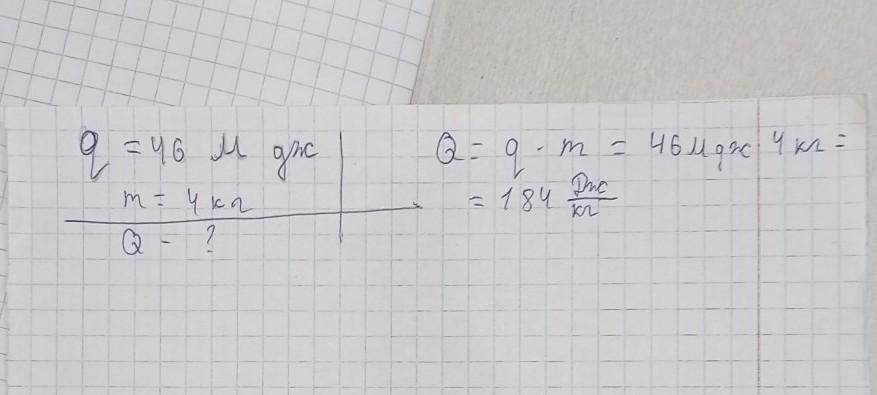 q = 46 М дж
m = 4 кг
Q - ?
Q = q · m = 46 М дж · 4 кг =
= 184 Дж/кг